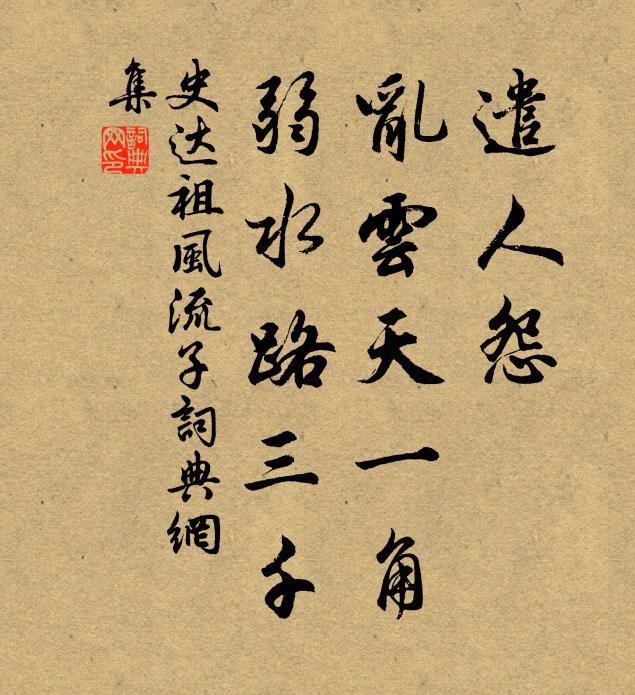 遣人怨
亂雲天一角
弱水路三千
史达祖風流子詞典網
集
詞典
网印